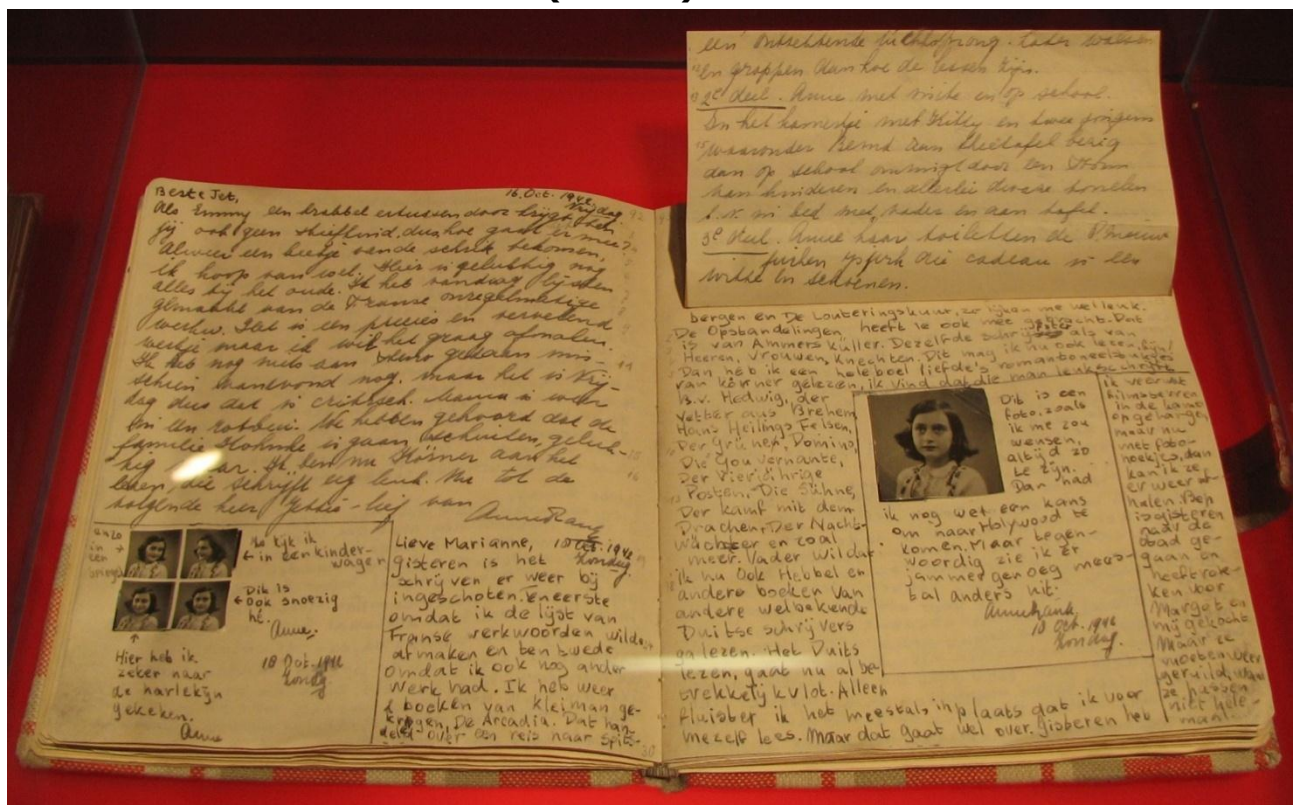 Beste Jet, 16. Oct. 1942
Vrijdag
Als Emmy een krabbel ertussendoor krijgt, ben
jij ook geen stiefkind, dus hoe gaat er mee?
Alweer een beetje van de schrik bekomen,
ik hoop van wel. Hier is gelukkig nog
alles bij het oude. Ik heb vandaag lijsten
gemaakt van de Franse onregelmatige
werkw. Het is een precies en vervelend
werkje maar ik wil het graag afmaken.
Ik heb nog niets aan steno gedaan mis-
schien vanavond nog, maar het is Vrij-
dag dus dat is critisch. Mama is weer
in en
We hebben gehoord dat de
familie is gaan schuilen, geluk-
kig maar. Ik ben nu Körner aan het
lezen, die schrijft erg leuk. Nu tot de
volgende keer Jetjes-lief van
Anne Frank
in
een
Zo kijk ik
in een kinder-
wagen
Dit is
ook snoezig
hè.
Anne.
Hier heb ik
zeker naar
de harlekijn
gekeken.
Anne
18 Oct. 1942
Zondag
Lieve Marianne, 18 Oct. 1942
Zondag.
gisteren is het
schrijven er weer bij
ingeschoten. Eneerste
omdat ik de lijst van
Franse werkwoorden wilde
afmaken en ten twede
omdat ik ook nog ander
werk had. Ik heb weer
2 boeken van Kleiman ge-
kregen, De Arcadia. Dat han-
deld over een reis naar Spits-
een ontzettende
En grappen dan hoe de lessen zijn.
2e deel. Anne met en op school.
In het kamertje met Kitty en twee jongens
waaronder Bernd aan theetafel bezig
dan op school omringd door een stroom
van kinderen en allerlei dwaze
b.v. in bed met vader en aan tafel.
3e deel. Anne haar toiletten de
die cadeau is een
witte en schoenen.
bergen en De Louteringskuur, ze lijken me wel leuk.
De Opstandelingen heeft ie ook mee gebracht. Dat
is van Ammers küller. Dezelfde schrijfster als van
Heeren, Vrouwen, Knechten. Dit mag ik nu ook lezen, fijn!
Dan heb ik een heleboel liefde's romantoneelstukjes
van Körner gelezen, ik vind dat die man leuk schrijft.
B.v. Hedwig, der
Vetter aus Brehem,
Hans Heilings Felsen,
Der Grüner Domino,
Die Gouvernante,
Der Vierjährige
Posten, Die Sühne,
Der kamf mit dem
Drachen, Der Nacht-
wächter en zoal
meer. Vader wil dat
ik nu ook Hebbel en
andere boeken van
andere welbekende
Duitse schrijvers
ga lezen. Het Duits
lezen, gaat nu al be-
trekkelijk vlot. Alleen
fluister ik het meestals inplaats dat ik voor
mezelf lees. Maar dat gaat wel over. Gisteren heb
Dit is een
foto, zoals
ik me zou
wensen,
altijd zo
te zijn.
Dan had
ik nog wel een kans
om naar Holywood te
komen. Maar tegen-
woordig zie ik er
jammer genoeg mees-
tal anders uit.
Anne Frank.
18 Oct. 1942
Zondag.
ik weer wat
filmsterren
in de kamer
opgehangen,
maar nu
met foto-
hoekjes, dan
kan ik ze
er weer af-
halen. Bep
is gisteren
naar de
stad ge-
gaan en
heeft rok-
ken voor
Margot en
mij gekocht.
Maar ze
moeten weer
geruild, want
ze passen
niet hele-
maal.